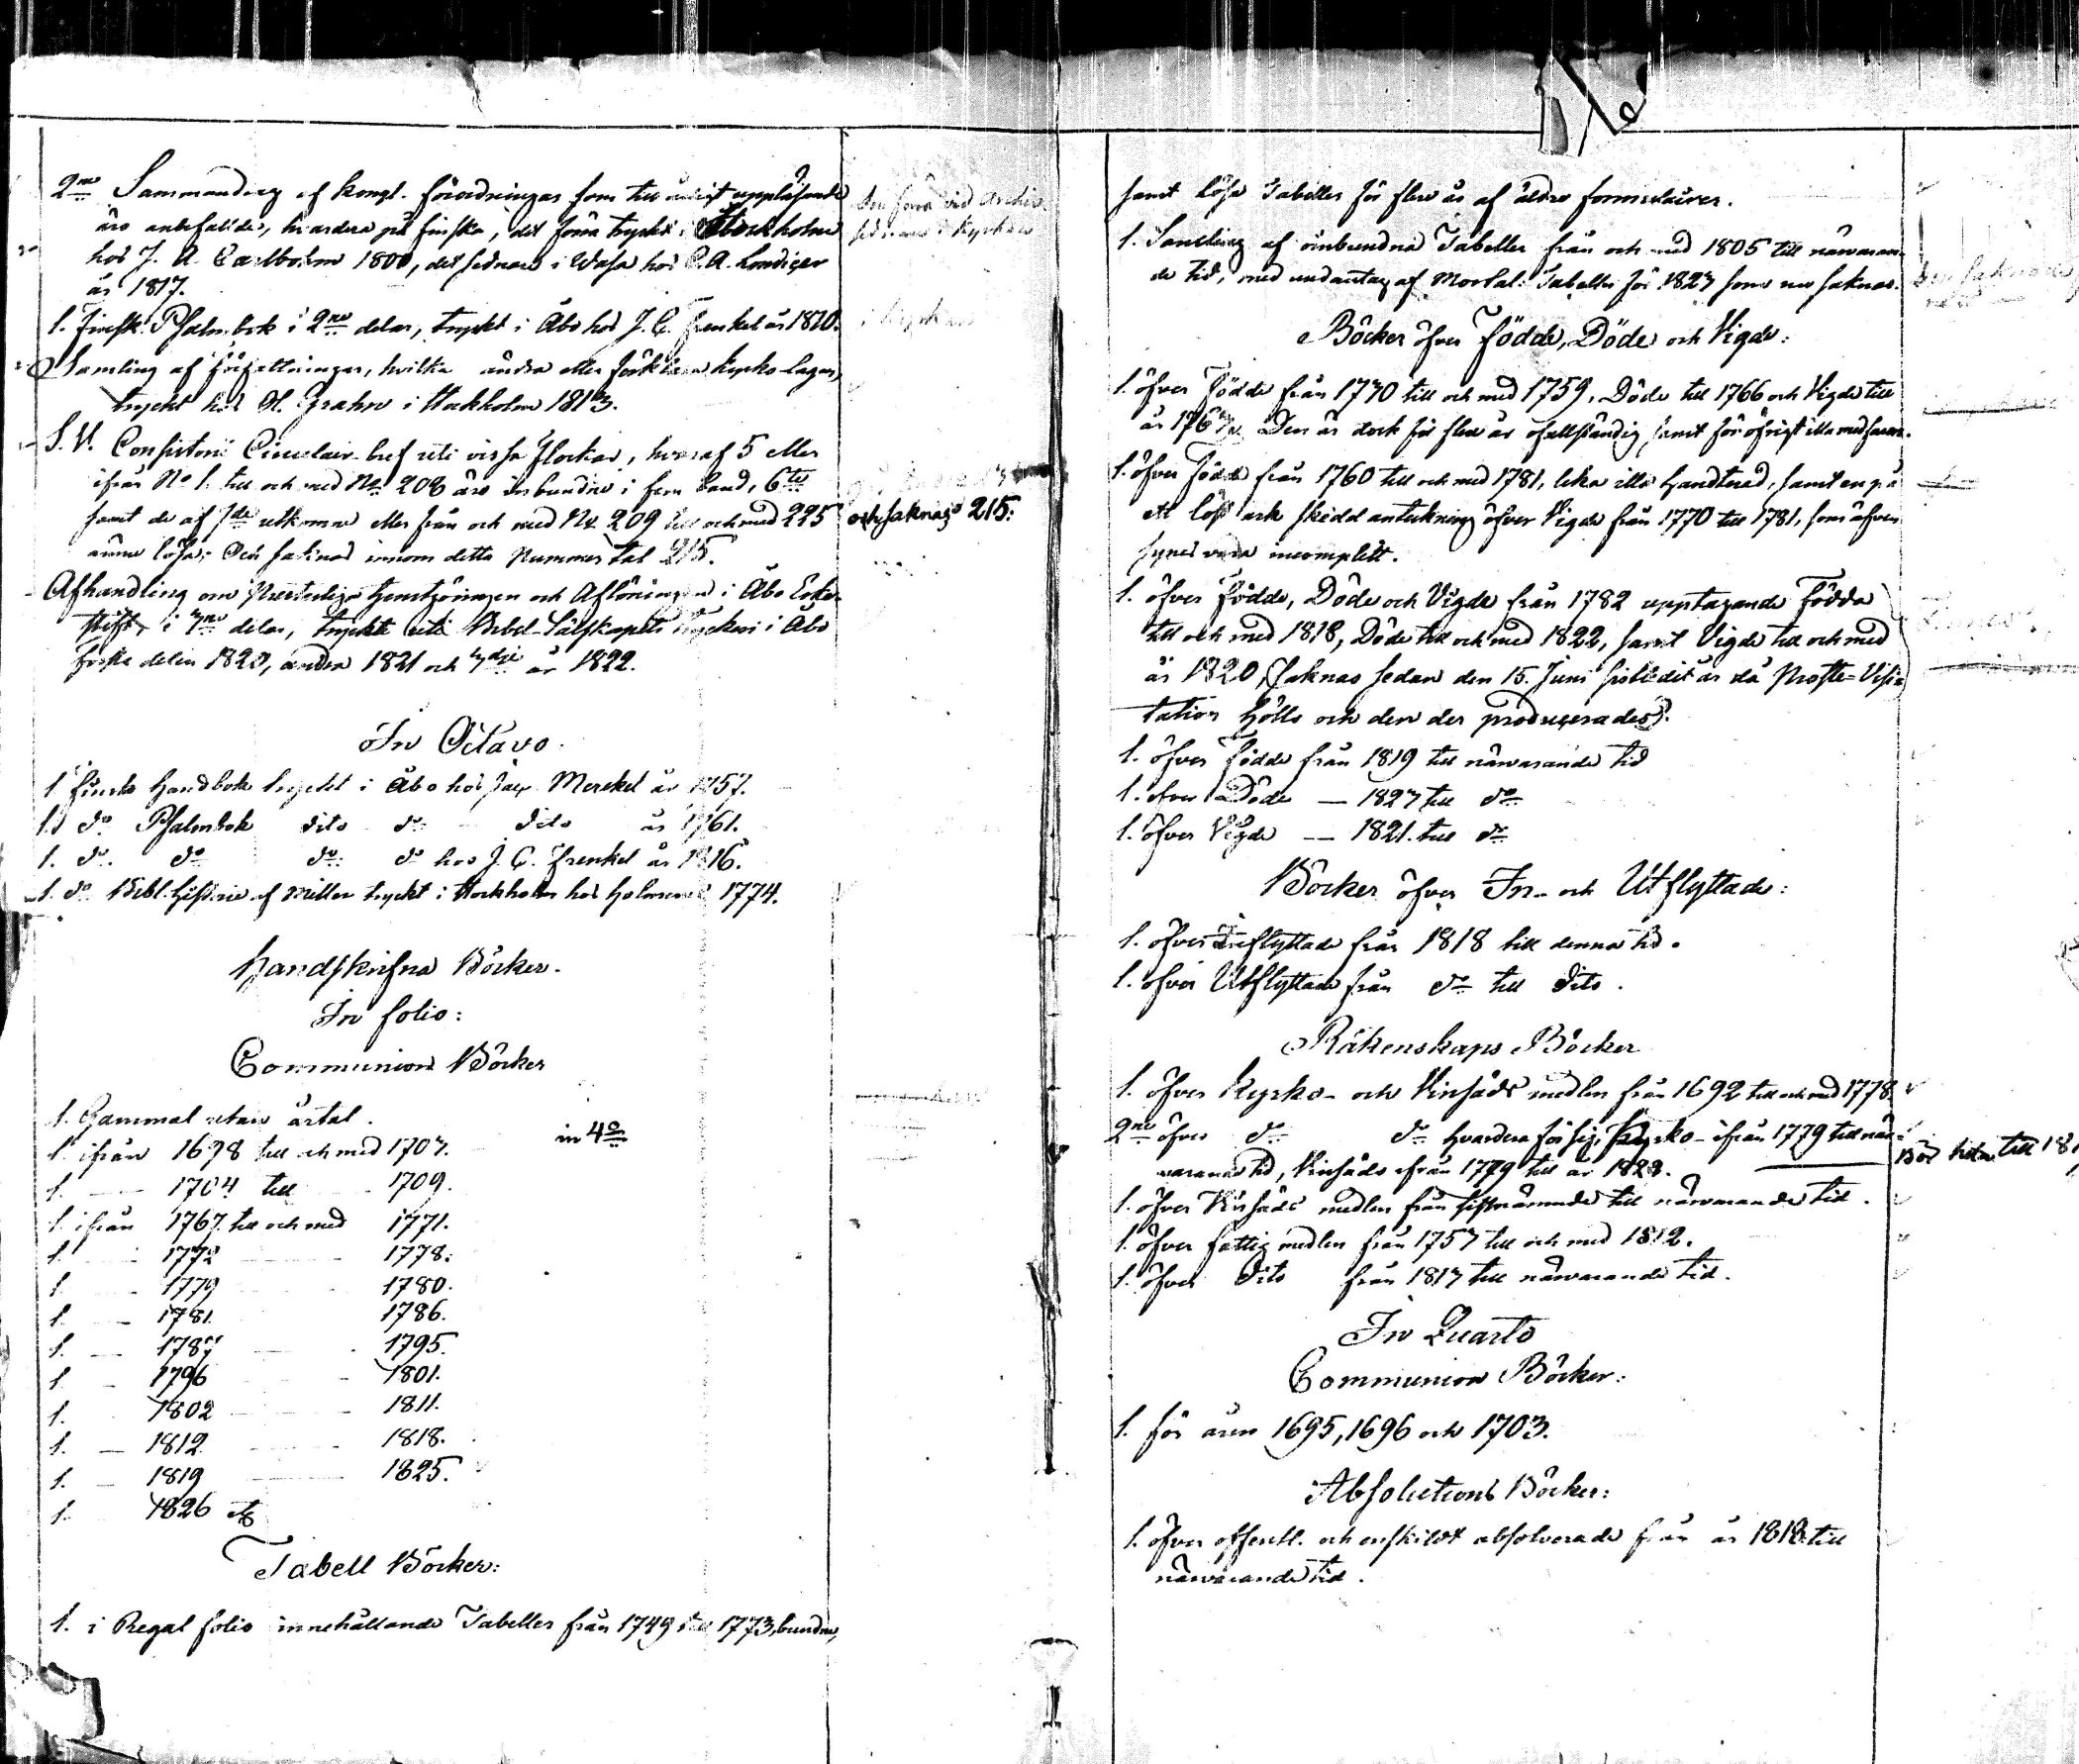 2ne Sammandrag af Kongl. Förordningar som till årligt uppläsande
äro anbefallde, hvardera på finska, det förra tryckt i Stockholm
hos J. A. Carlbohm 1800, det sednare i Wasa hos C. A. Londicer
år 1817.
1. Finsk Psalmbok i 2ne delar, tryckt i Åbo hos J. C. Frenkel år 1810.
Samling af författningar, hvilka ändra eller förklara Kyrko-lagen,
tryckt hos H. Grahn i Stockholm 1813.
S. V. Consistorii Circulair-bref uti vissa flockar, hvaraf 5 eller
ifrån No 1. till och med No 208 äro inbundne i fem band, 6te
samt de af 7de utkomne eller från och med No. 209 till och med 225
ännu lösa; Och saknas innom detta Nummer tal 215.
och saknas 215.
Afhandling om Presterliga Tjenstgöringen och Aflöningen i Åbo Erke-
stift, i 3ne delar, tryckte uti Bibel-Sälskapets Tryckeri i Åbo
första delen 1820, andra 1821 och 3dje år 1822.
In Octavo.
1 finsk Handbok tryckt i Åbo hos Jac. Merckel år 1757.
1. do Psalmbok dito do dito år 1761.
1. do do do do hos J. C. Frenkel år 1816.
1. do Bibl. Historie af Miller tryckt i Stockholm hos Holmerus 1774.
Handskrifna Böcker.
In folio:
Communions Böcker
1. Gammal utan årtal.
1. ifrån 1698 till och med 1703. in 4o
1. — 1704 till 1709.
1. ifrån 1767. till och med 1771.
1. — 1772 — 1778.
1 — 1779 — 1780.
1. — 1781. 1786.
1. — 1787 — 1795.
1 — 1796 — 1801.
1. 1802 — 1811.
1. — 1812 — 1818.
1. — 1819 — 1825.
1. 1826
Tabell Böcker:
1. i Regal folio innehållande Tabeller från 1749 till 1773, bundne,
samt lösa Tabeller för flere år af äldre formulairer.
1. Samling af oinbundna Tabeller från och med 1805 till närvaran-
de tid, med undantag af Mortal. Tabellen för 1823 som nu saknas.
Böcker öfver Födde, Döde och Vigde:
1. öfver Födde från 1730 till och med 1759, Döde till 1766 och Vigde till
år Den är dock för flere år ofullständig samt för öfrigt illa medfaren.
1. öfver Födde från 1760 till och med 1781, lika illa handterad, samt en på
ett löst ark skedd antekning öfver Vigde från 1770 till 1781, som äfven
synes vara incomplett.
1. öfver Födde, Döde och Vigde från 1782 upptagande Födda
till och med 1818, Döde till och med 1822, samt Vigde till och med
år 1820, (saknas sedan den 15. Juni sistledit år då Proste-Visi-
tation hölls och den der producerades).
1. öfver Födde från 1819 till närvarande tid
1. öfver Döde — 1823 till do
1. öfver Vigde — 1821. till do
Böcker öfver In- och Utflyttade:
1. öfver Inflyttade från 1818 till denna tid.
1. öfver Utflyttade från do till dito.
Räkenskaps Böcker
1. öfver Kyrko- och Vinsäds medlen från 1692 till och med 1778.
2ne öfver do do hvardera för sig, Kyrko- ifrån 1779 till när-
varande tid, Vinsäds ifrån 1779 till år 1823.
1. öfver Vinsäds medlen från sistnämnde till närvarande tid.
1. öfver fattig medlen från 1757 till och med 1812.
1. öfver dito från 1813 till närvarande tid.
In Quarto
Communion Böcker:
1. för åren 1695, 1696 och 1703.
Absolutions Böcker:
1. öfver offentl. och enskildt absolverade från år 1818 till
närvarande tid.